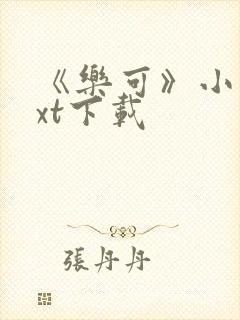 《樂可》小
xt下載
張丹丹